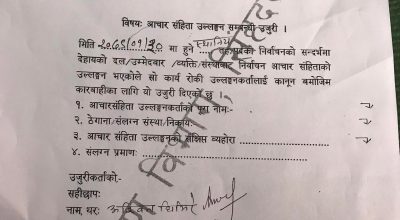 विषयः आचार संहिता उल्लङ्घन सम्बन्धी उजुरी ।
मिति २०७९/०१/३० मा हुने स्थानिय तहको निर्वाचनको सन्दर्भमा
देहायको दल/उम्मेदवार /व्यक्ति/संस्थाबाट निर्वाचन आचार संहिताको
उल्लङ्घन भएकोले सो कार्य रोकी उल्लङ्घनकर्तालाई कानून बमोजिम
कारबाहीका लागि यो उजुरी दिएको छु ।
१. आचारसंहिता उल्लङ्घनकर्ताको पूरा नामः-
२. ठेगाना/संलग्न संस्था/निकायः
३. आचारसंहिता उल्लङ्घनको संक्षिप्त व्यहोरा
४. संलग्न प्रमाणः
उजुरीकर्ताकोः-
सहीछापः
नाम, थरः